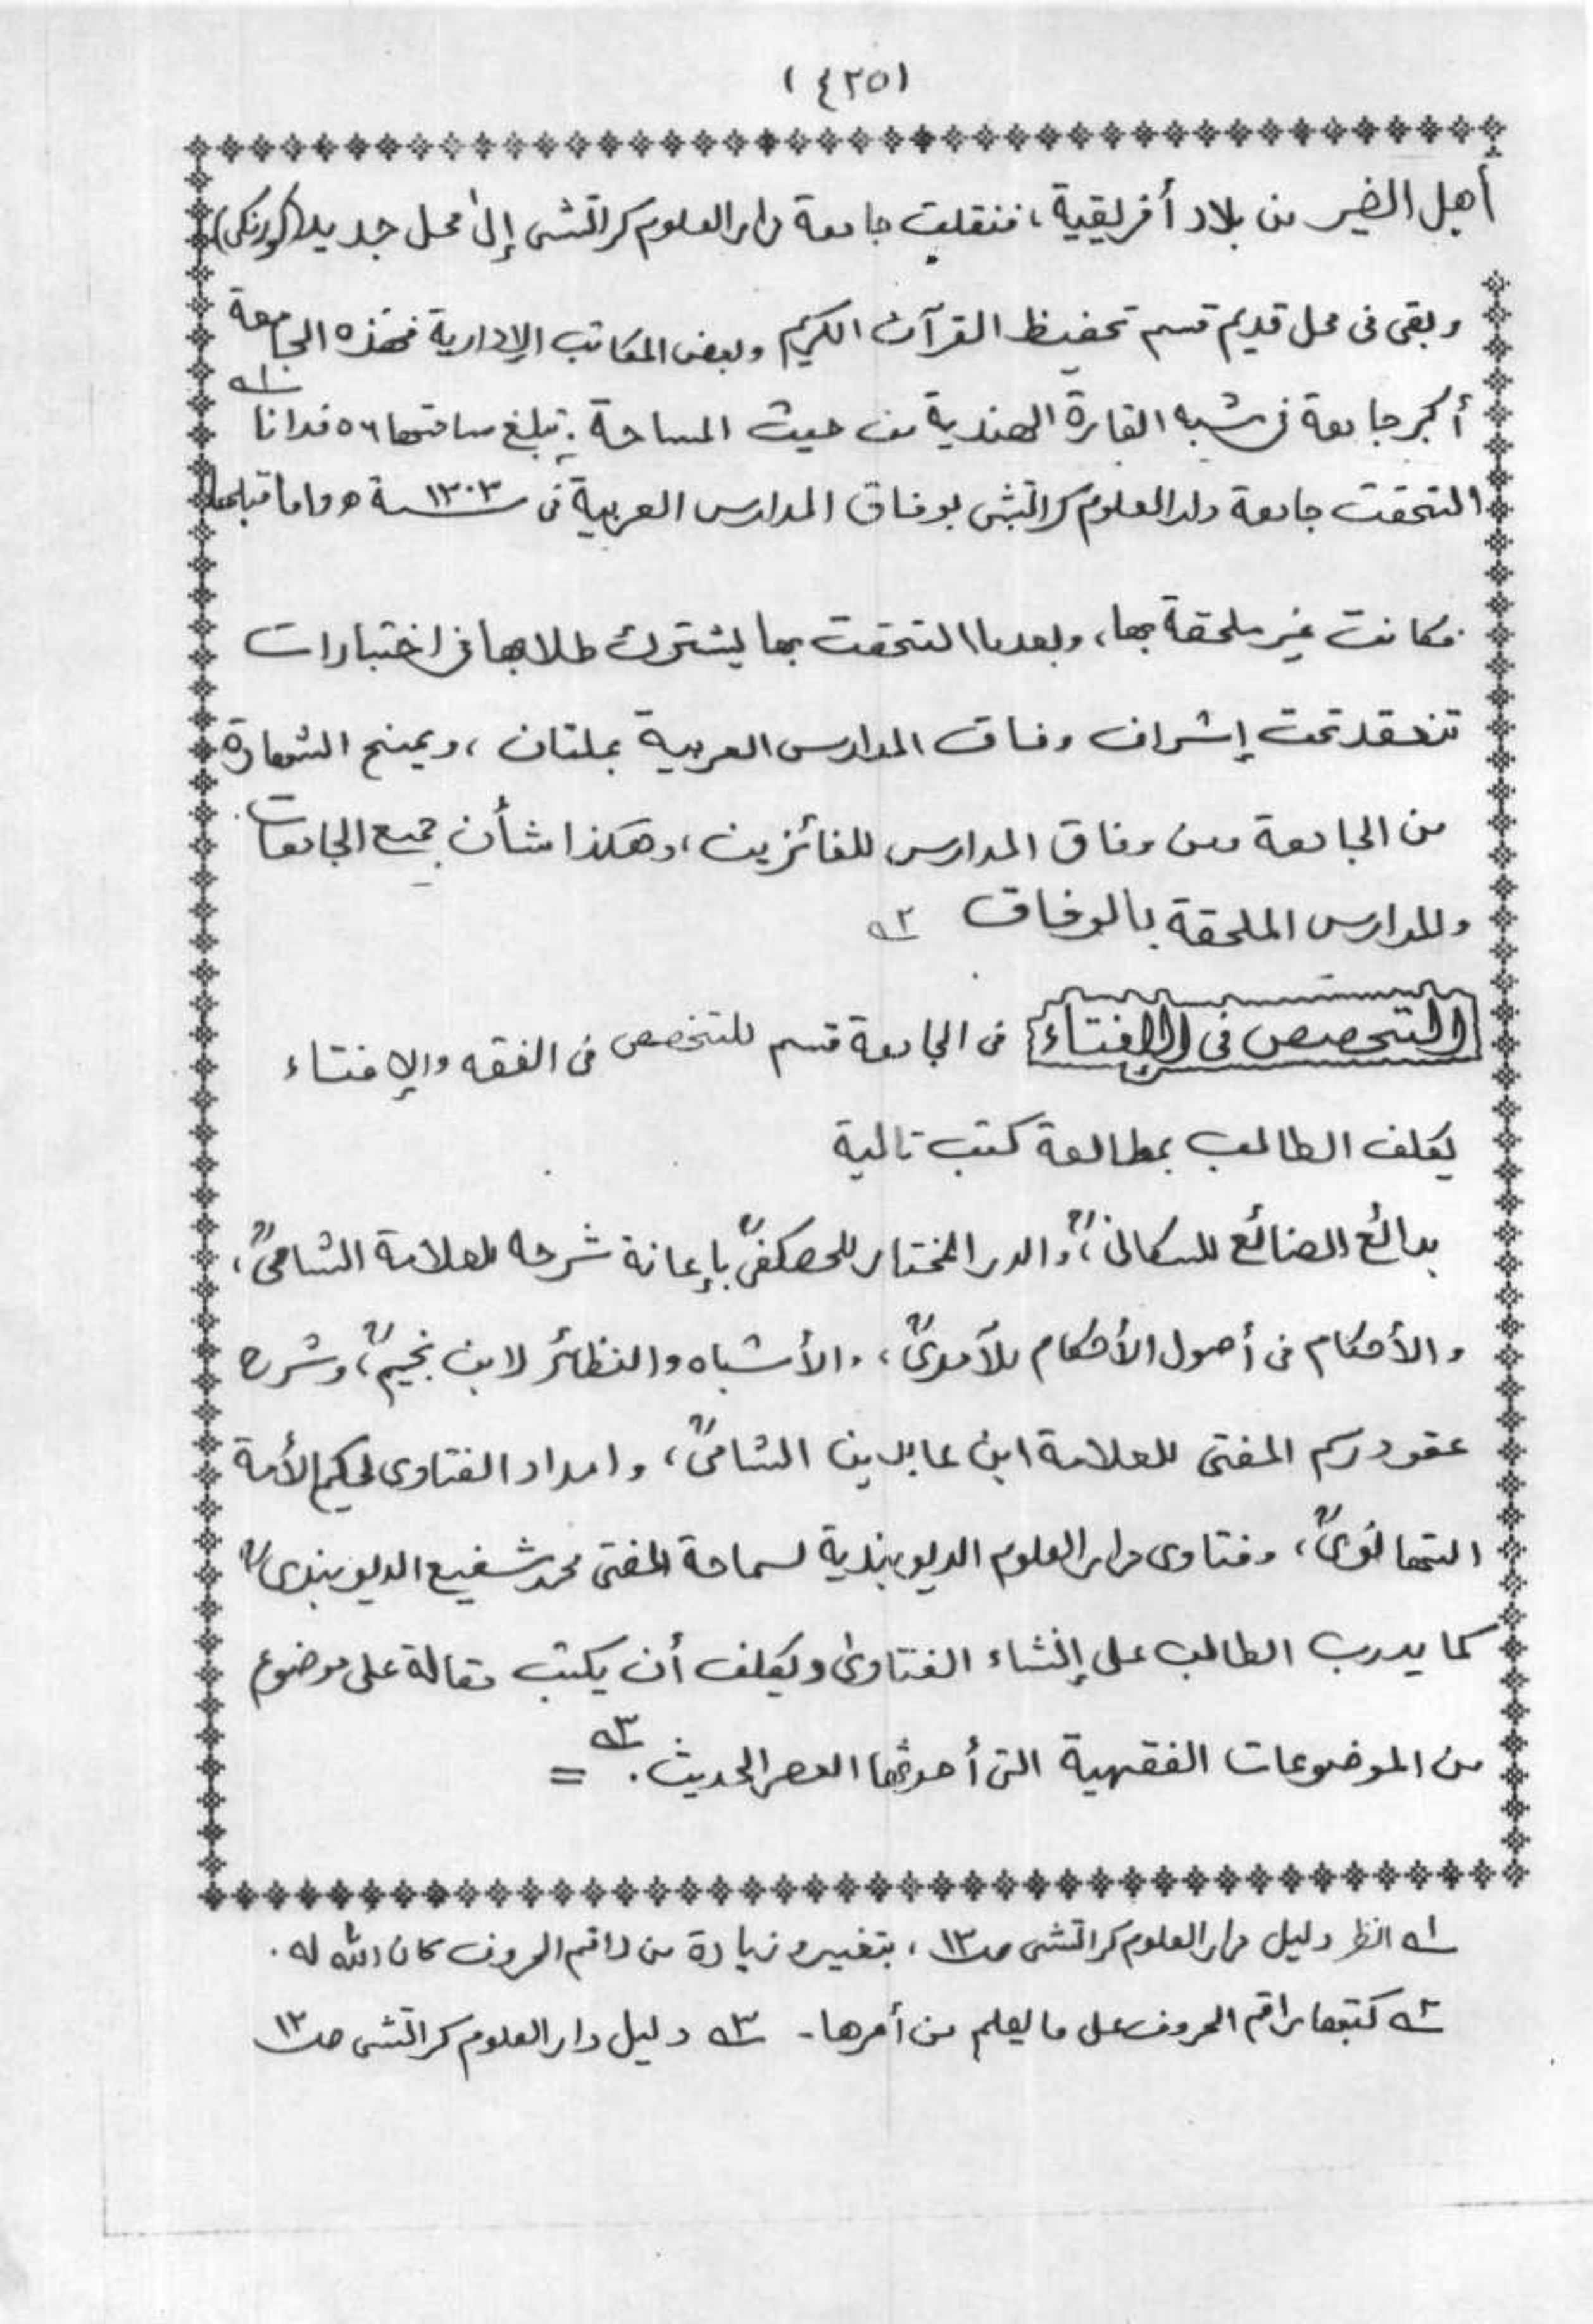 (٤٢٥)
أهل الخير من بلاد أفريقية، فنقلت جامعة دار العلوم كراتشى إلى محل جديد (كورنكى)
وبقى فى محل قديم قسم تحفيظ القرآن الكريم وبعض المكاتب الإدارية فهذه الجامعة
أكبر جامعة فى شبه القارة الهندية من حيث المساحة. تبلغ ساحتها ٥٦ فدانا ١ـه
التحقت جامعة دار العلوم كراتشى بوفاق المدارس العربية فى سنة ١٣٠٣ﻫ واما قبلها
فكانت غير ملحقة بها، وبعدما التحقت بها يشترك طلابها فى اختبارات
تنعقد تحت إشراف وفاق المدارس العربية بملتان، ويمنح الشهادة
من الجامعة ومن وفاق المدارس للفائزين، وهكذا شأن جميع الجامعات
والمدارس الملحقة بالوفاق ٢ـه
التخصص فى الإفتاء فى الجامعة قسم للتخصص فى الفقه والإفتاء
يكلف الطالب بمطالعة كتب تالية
بدائع الصنائع للكاسانىؒ، والدر المختار للحصكفىؒ بإعانة شرحه للعلامة الشامىؒ،
والأحكام فى أصول الأحكام للآمدىؒ، والأشباه والنظائر لابن نجيمؒ، وشرح
عقود رسم المفتى للعلامة ابن عابدين الشامىؒ، وامداد الفتاوى لحكيم الأمة
التهانوىؒ، وفتاوى دار العلوم الديوبندية لسماحة المفتى محمد شفيع الديوبندىؒ
كما يدرب الطالب على إنشاء الفتاوى ويكلف أن يكتب مقالة على موضوع
من الموضوعات الفقهية التى أحدثها العصر الحديث. ٣ـه =
١ـه انظر دليل دار العلوم كراتشى صـ١٣، بتغيير وزيادة من راقم الحروف كان الله له.
٢ـه كتبها راقم الحروف على ما يعلم من أمرها - ٣ـه دليل دار العلوم كراتشى صـ١٢